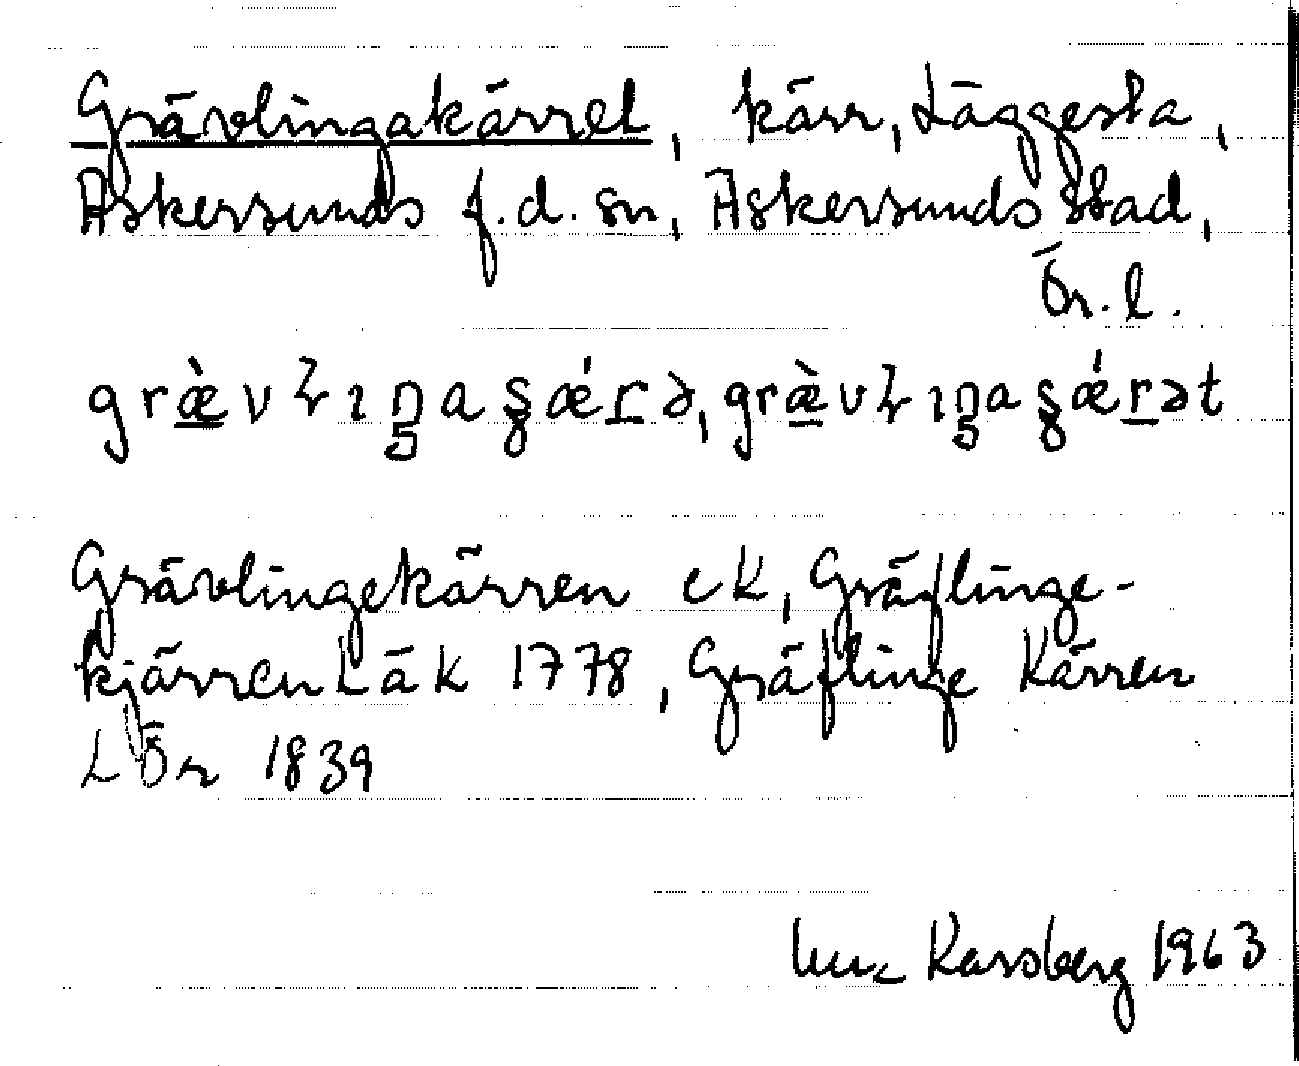 Grävlingakärret, kärr, Läggesta,
Askersunds f.d. sn, Askersunds stad,
Ör. l.
Grävlingekärren eK, Gräflinge-
kjärren LäK 1778, Gräflinge Kärren
LÖr 1839
Karsberg 1963